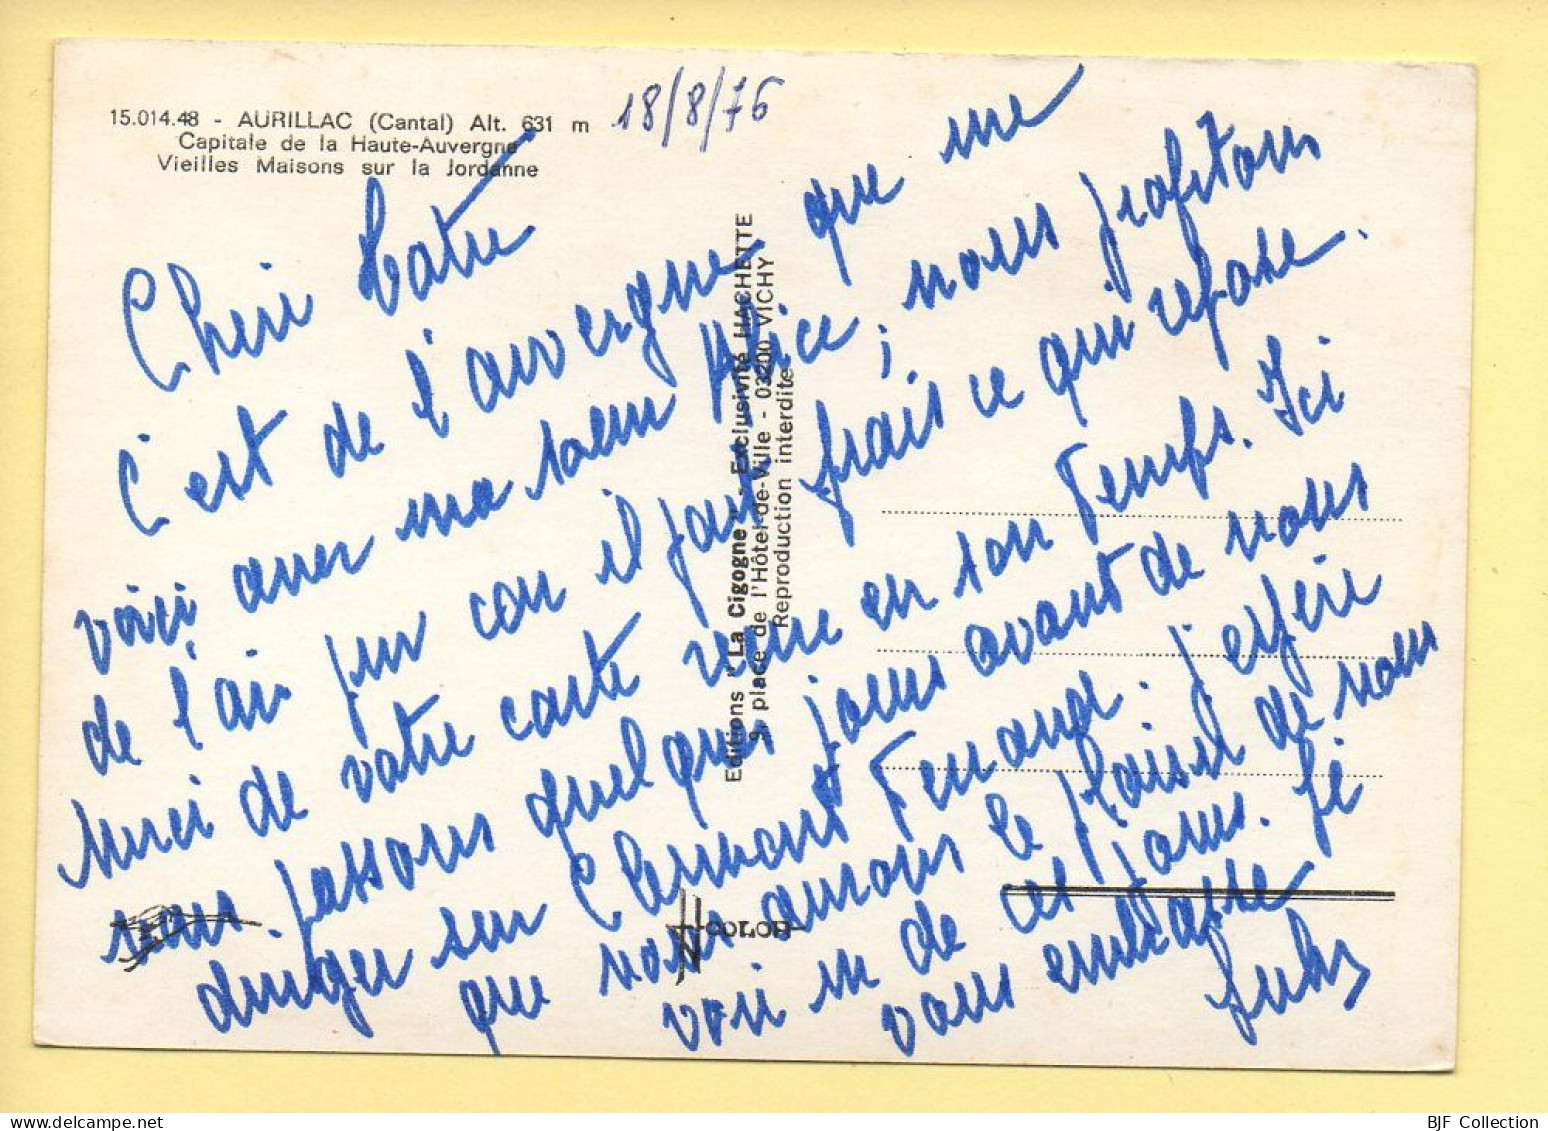 15.014.48 - AURILLAC (Cantal) Alt. 631 m
Capitale de la Haute-Auvergne
Vieilles Maisons sur la Jordanne
18/8/76
C'est de l'auvergne que me
voici avec ma soeur Alice, nous profitons
de l'air pur car il fait frais ce qui repose.
Merci de votre carte reçue en son temps. Ici
nous passons quelques jours avant de nous
diriger sur Clermont Ferrand. j'espère
que nous aurons le plaisir de nous
voir un de ces jours. Je
vous embrasse
Editions "La Cigogne" - Exclusivité HACHETTE
9, place de l'Hôtel-de-Ville - 03200 VICHY
Reproduction interdite
COLOR
BJF Collection